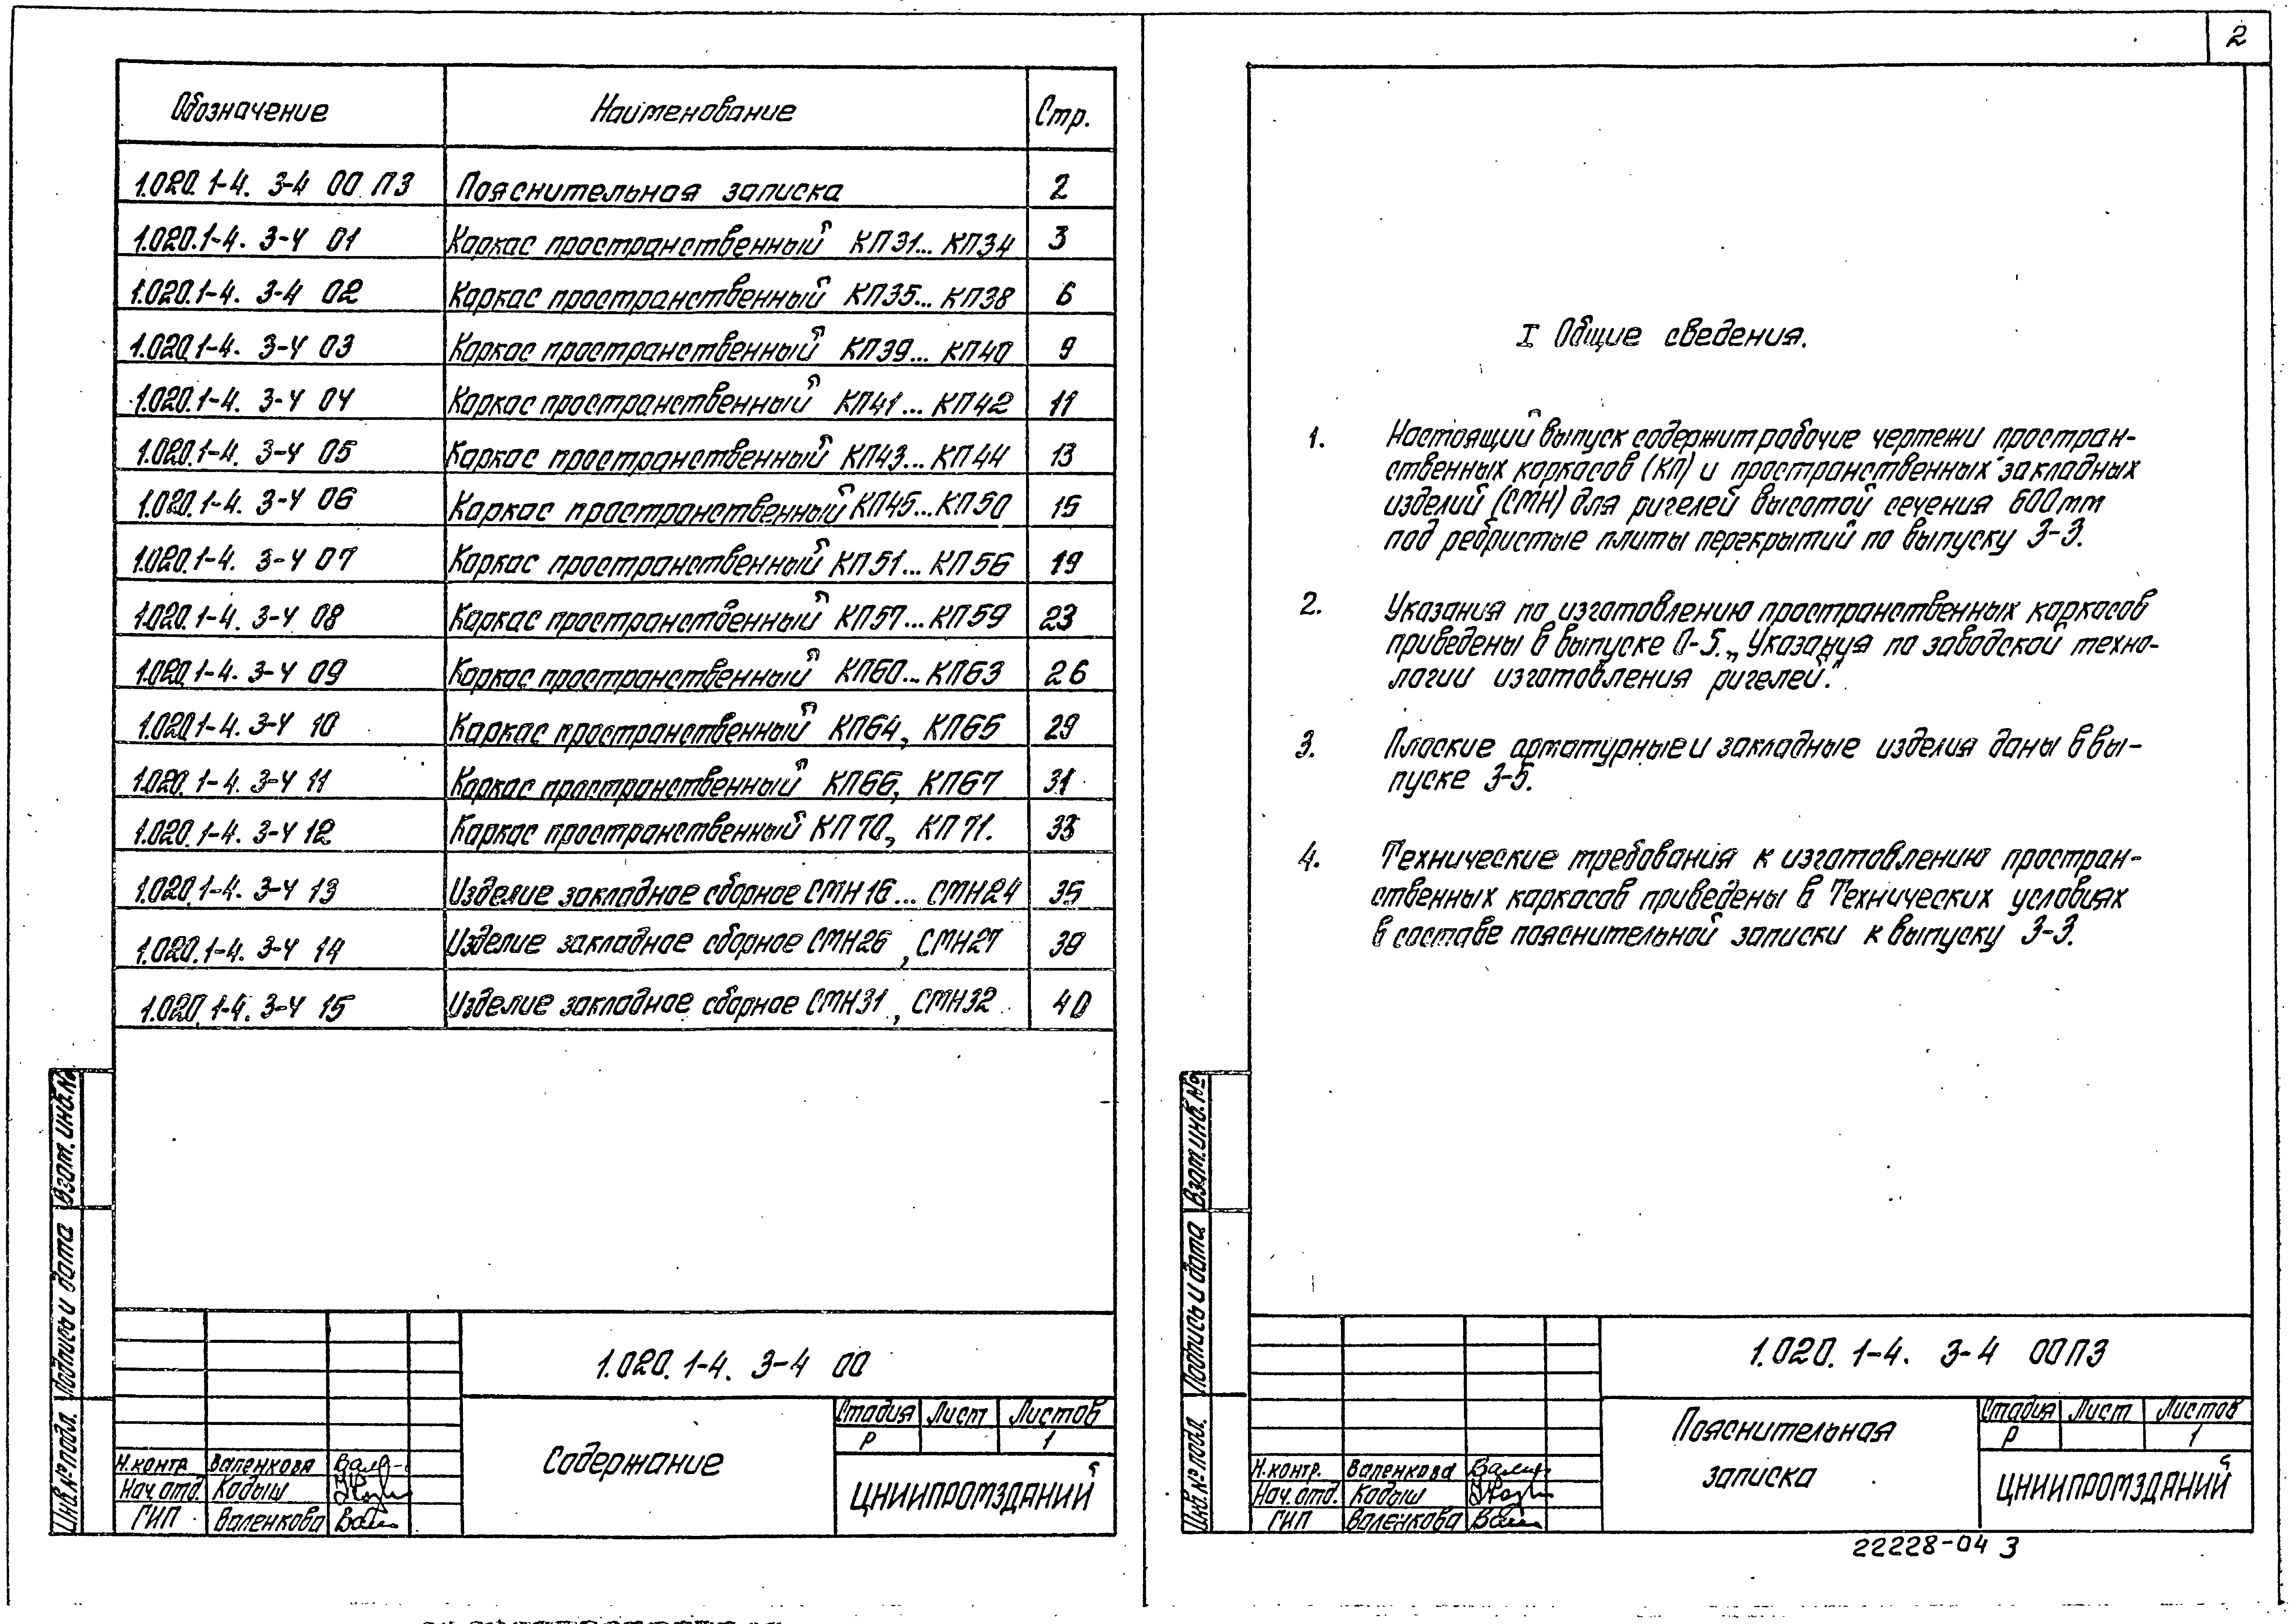 Обозначение Наименование Стр.
1.020.1-4. 3-4 00 ПЗ Пояснительная записка 2
1.020.1-4. 3-4 01 Каркас пространственный КП31... КП34 3
1.020.1-4. 3-4 02 Каркас пространственный КП35... КП38 6
1.020.1-4. 3-4 03 Каркас пространственный КП39... КП40 9
1.020.1-4. 3-4 04 Каркас пространственный КП41... КП42 11
1.020.1-4. 3-4 05 Каркас пространственный КП43... КП44 13
1.020.1-4. 3-4 06 Каркас пространственный КП45...КП50 15
1.020.1-4. 3-4 07 Каркас пространственный КП51... КП56 19
1.020.1-4. 3-4 08 Каркас пространственный КП57...КП59 23
1.020.1-4. 3-4 09 Каркас пространственный КП60... КП63 26
1.020.1-4. 3-4 10 Каркас пространственный КП64, КП65 29
1.020.1-4. 3-4 11 Каркас пространственный КП66, КП67 31
1.020.1-4. 3-4 12 Каркас пространственный КП70, КП71. 33
1.020.1-4. 3-4 13 Изделие закладное сборное СМН16... СМН24 35
1.020.1-4. 3-4 14 Изделие закладное сборное СМН26, СМН27
1.020.1-4. 3-4 15 Изделие закладное сборное СМН31, СМН32 40
Взам. инв.№
Подпись и дата
Инв.№ подл.
1.020.1-4. 3-4 00
Содержание
Стадия Лист Листов
Р 1
ЦНИИПРОМЗДАНИЙ
Н.контр. Валенкова
Нач.отд. Кадыш
ГИП Валенкова
2
I Общие сведения.
1. Настоящий выпуск содержит рабочие чертежи простран-
ственных каркасов (КП) и пространственных закладных
изделий (СМН) для ригелей высотой сечения 600мм
под ребристые плиты перекрытий по выпуску 3-3.
2. Указания по изготовлению пространственных каркасов
приведены в выпуске 0-5. „Указания по заводской техно-
логии изготовления ригелей."
3. Плоские арматурные и закладные изделия даны в вы-
пуске 3-5.
4. Технические требования к изготовлению простран-
ственных каркасов приведены в Технических условиях
в составе пояснительной записки к выпуску 3-3.
Взам.инв.№
Подпись и дата
Инв.№ подл.
1.020.1-4. 3-4 00ПЗ
Пояснительная
записка
Стадия Лист Листов
Р 1
ЦНИИПРОМЗДАНИЙ
Н.контр. Валенкова
Нач.отд. Кадыш
ГИП Валенкова
22228-04 3